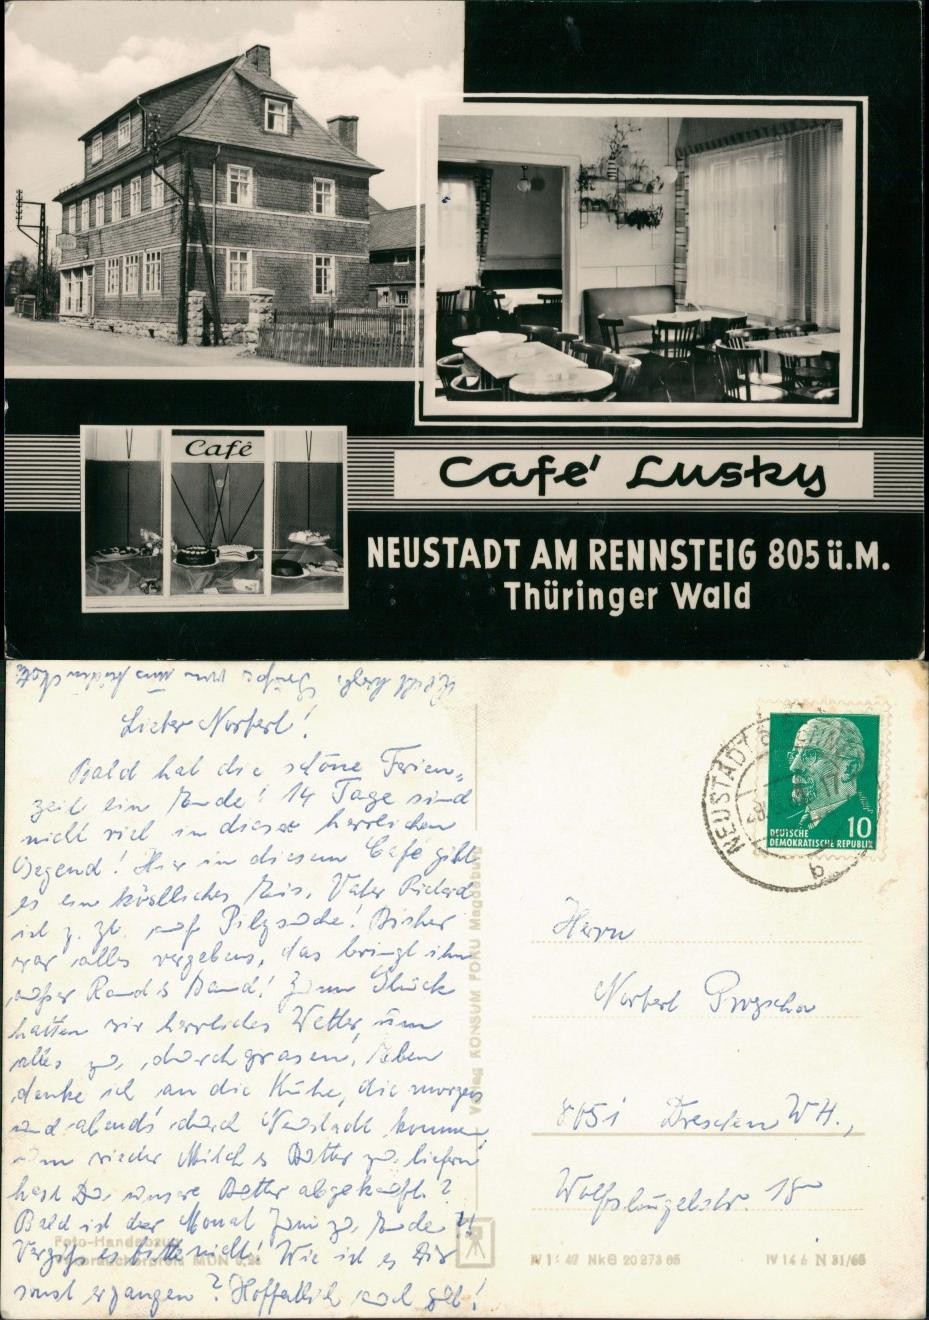 Café
Café Lusky
NEUSTADT AM RENNSTEIG 805 ü.M.
Thüringer Wald
Lieber Norbert!
Bald hat die schöne Ferien-
zeit ein Ende! 14 Tage sind
nicht viel in dieser herrlichen
Gegend! Hier in diesem Café gibt
es ein köstliches Eis. Vater Richard
ist z. Zt. auf Pilzsuche! Bisher
war alles vergebens, das bringt ihn
außer Rand & Band! Zum Glück
hatten wir herrliches Wetter, um
alles zu durchgrasen, eben
denke ich an die Kühe, die morgens
und abends durch Neustadt kommen,
um wieder Milch & Butter zu liefern
hast Du unsere Butter abgekauft?
Bald ist der Monat Juni zu Ende!!
Vergiß es bitte nicht! Wie ist es Dir
sonst ergangen? Hoffentlich auch gut!
Verlag KONSUM FOKU Magdeburg
Foto-Handabzug
Verbraucherpreis MDN 0,26
NEUSTADT
b
DEUTSCHE
DEMOKRATISCHE REPUBLIK
10
Herrn
Norbert
8051 Dresden WH.,
Wolfshügelstr. 18
IV 14 6 N 31/65